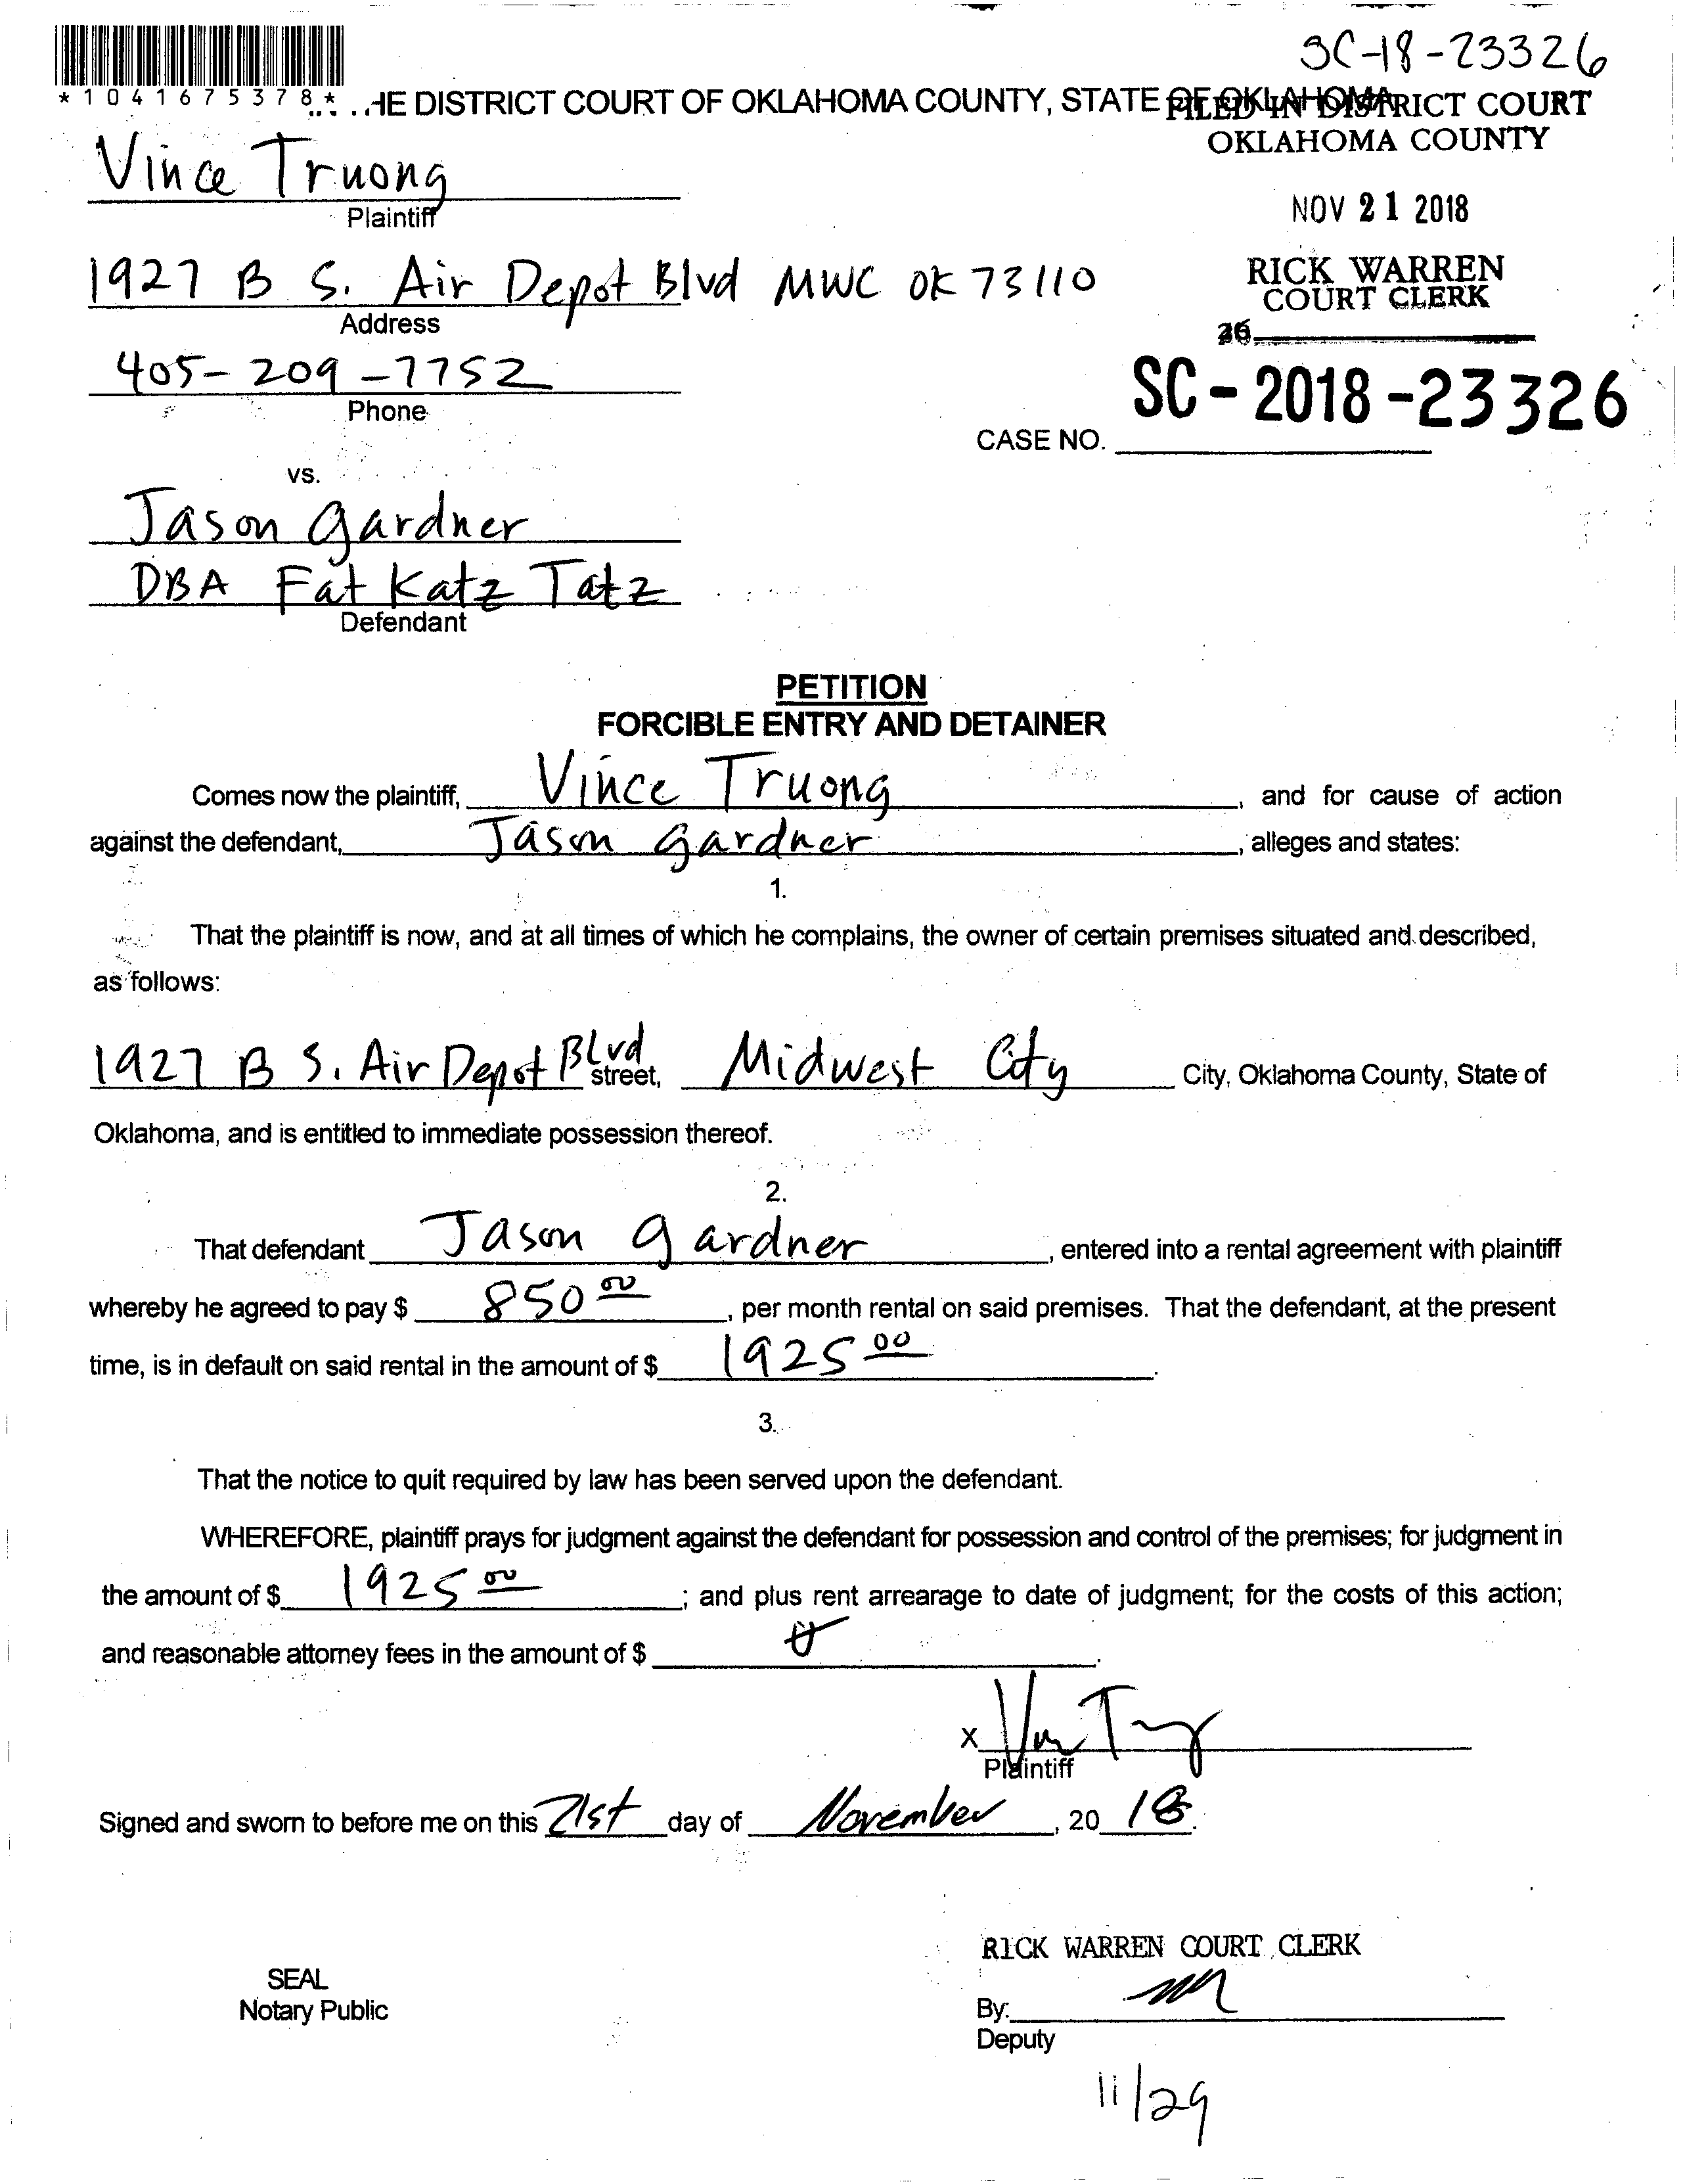 SC-18-23326
*1041675378*
HE DISTRICT COURT OF OKLAHOMA COUNTY, STATE OF OKLAHOMA
FILED IN DISTRICT COURT
OKLAHOMA COUNTY
Vince Truong
Plaintiff
NOV 21 2018
1927 B S. Air Depot Blvd MWC OK 73110
Address
RICK WARREN
COURT CLERK
405-209-7752
Phone
SC-2018-23326
CASE NO.
vs.
Jason Gardner
DBA Fat Katz Tatz
Defendant
PETITION
FORCIBLE ENTRY AND DETAINER
Comes now the plaintiff, Vince Truong, and for cause of action
against the defendant, Jason Gardner, alleges and states:
1.
That the plaintiff is now, and at all times of which he complains, the owner of certain premises situated and described,
as follows:
1927 B S. Air Depot Blvd street, Midwest City City, Oklahoma County, State of
Oklahoma, and is entitled to immediate possession thereof.
2.
That defendant Jason Gardner, entered into a rental agreement with plaintiff
whereby he agreed to pay $ 850 00, per month rental on said premises. That the defendant, at the present
time, is in default on said rental in the amount of $ 1925 00.
3.
That the notice to quit required by law has been served upon the defendant.
WHEREFORE, plaintiff prays for judgment against the defendant for possession and control of the premises; for judgment in
the amount of $ 1925 00; and plus rent arrearage to date of judgment; for the costs of this action;
and reasonable attorney fees in the amount of $ 0.
X
Plaintiff
Signed and sworn to before me on this 21st day of November, 2018.
RICK WARREN COURT CLERK
SEAL
Notary Public
By:
Deputy
11/29